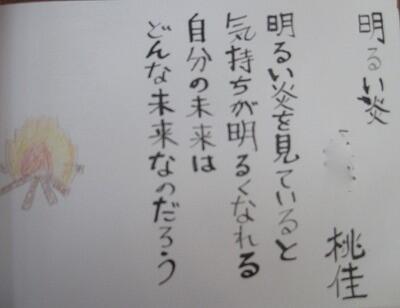 明るい炎
桃佳
明るい炎を見ていると
気持ちが明るくなれる
自分の未来は
どんな未来なのだろう